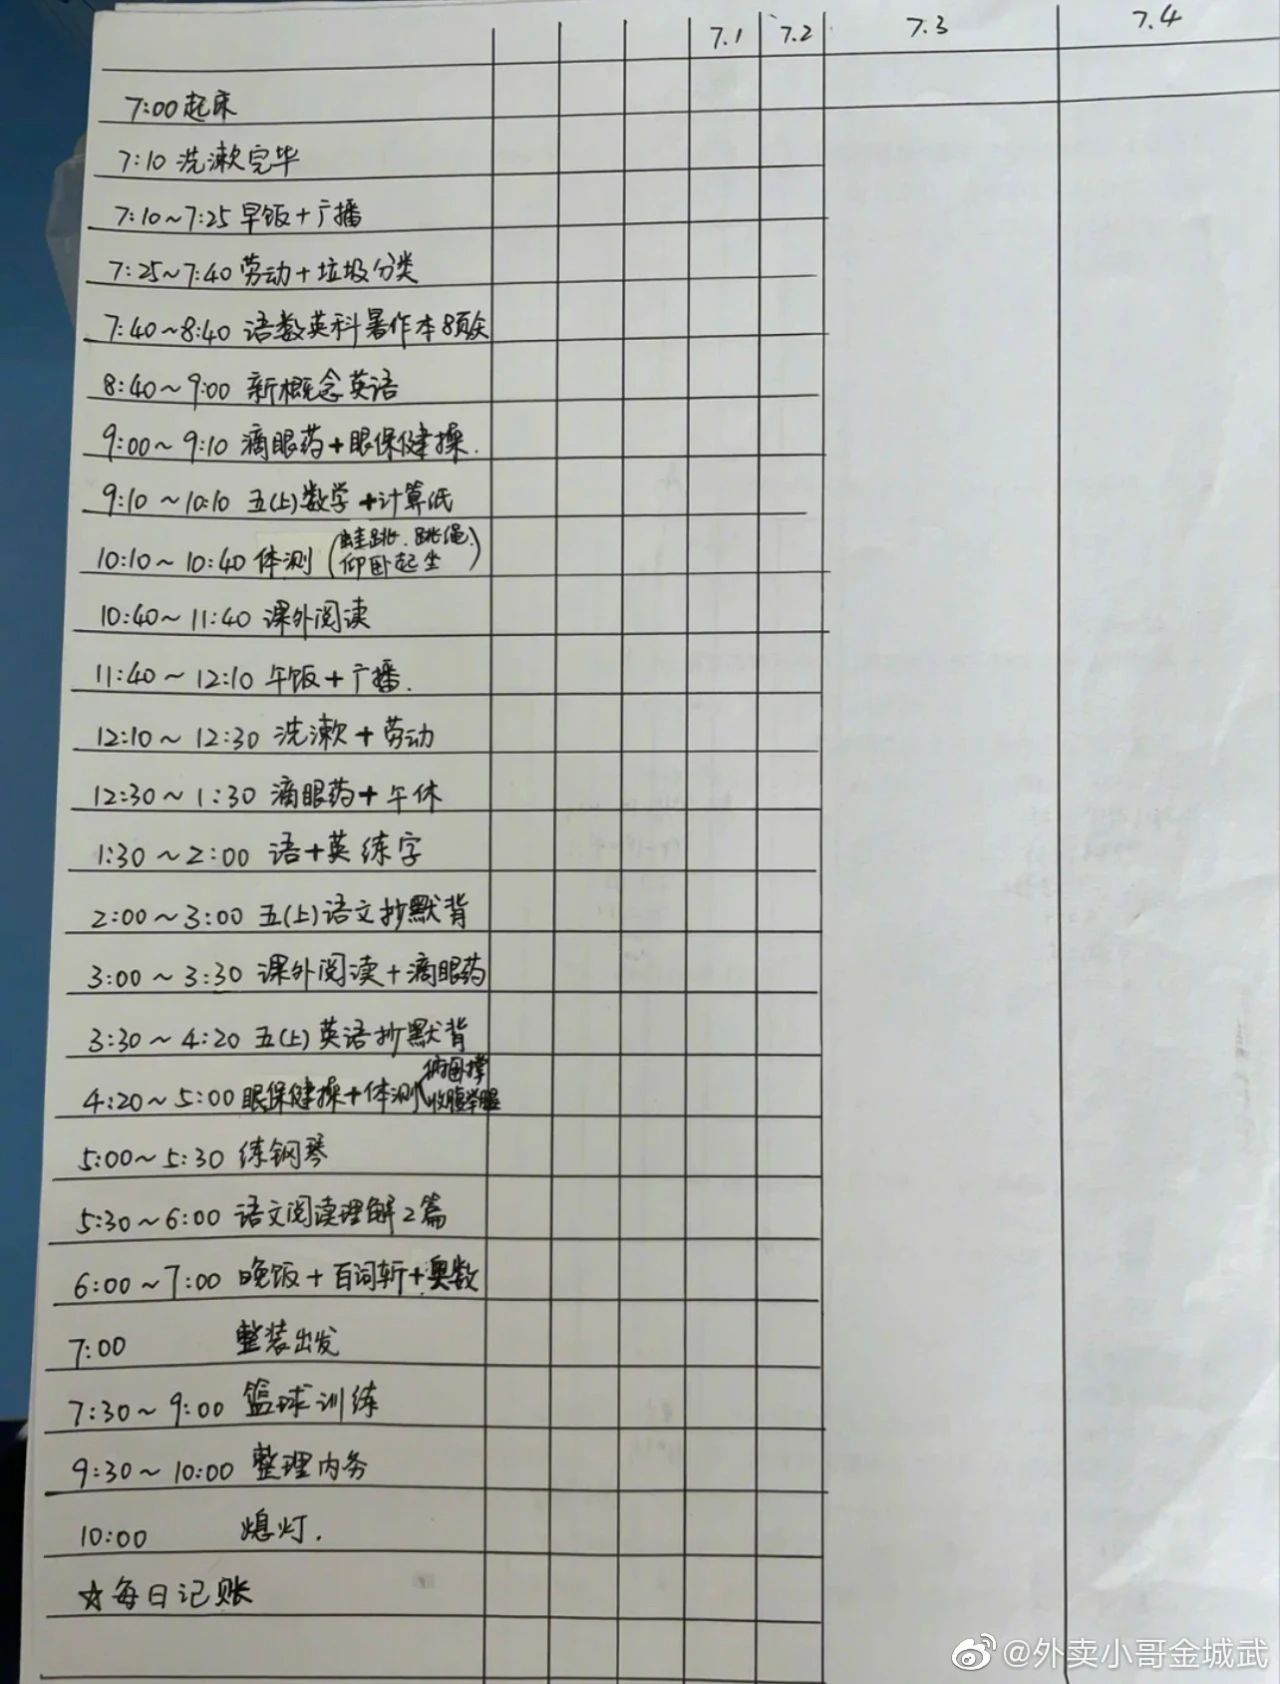 7.1 7.2 7.3 7.4
7:00 起床
7:10 洗漱完毕
7:10~7:25 早饭+广播
7:25~7:40 劳动+垃圾分类
7:40~8:40 语数英科暑作本8页
8:40~9:00 新概念英语
9:00~9:10 滴眼药+眼保健操.
9:10~10:10 五(上)数学+计算纸
10:10~10:40 体测(蛙跳.跳绳.
仰卧起坐)
10:40~11:40 课外阅读
11:40~12:10 午饭+广播.
12:10~12:30 洗漱+劳动
12:30~1:30 滴眼药+午休
1:30~2:00 语+英练字
2:00~3:00 五(上)语文抄默背
3:00~3:30 课外阅读+滴眼药
3:30~4:20 五(上)英语抄默背
4:20~5:00 眼保健操+体测(俯卧撑
收腹举腿
5:00~5:30 练钢琴
5:30~6:00 语文阅读理解2篇
6:00~7:00 晚饭+百词斩+奥数
7:00 整装出发
7:30~9:00 篮球训练
9:30~10:00 整理内务
10:00 熄灯.
☆每日记账
@外卖小哥金城武